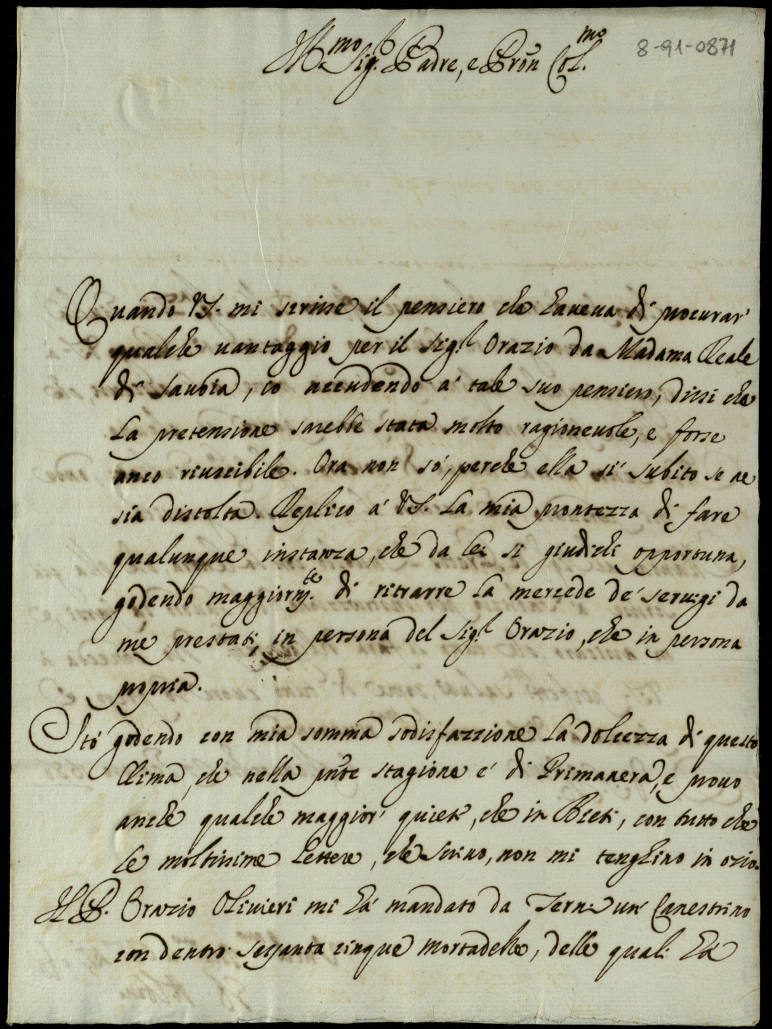 Ill.mo Sig.r Padre, e Pron Col.mo
8-91-0871
Quando V.S. mi scrisse il pensiero che haueua di procurar'
qualche uantaggio per il Sig.r Orazio da Madama Reale
di Sauoia, io accudendo a' tale suo pensiero, dissi che
la pretensione sarebbe stata molto ragioneuole, e forse
anco riuscibile. Ora non só, perche ella sí subito se ne
sia distolta. Replico a' V.S. la mia prontezza di fare
qualunque instanza, che da lei si giudichi opportuna,
godendo maggiorm.te di ritrarre la mercede de' seruigi da
me prestati in persona del Sig.r Orazio, che in persona
propria.
Stó godendo con mia somma sodisfazzione la dolcezza di questo
Clima, che nella pnte stagione é di Primauera, e prouo
anche qualche maggior' quiete, che in Rieti, con tutto che
le moltissime lettere, che scriuo, non mi tenghino in ozio.
Il P. Orazio Oliuieri mi há mandato da Terni un' Canestrino
con dentro sessanta cinque mortadelle, delle quali há